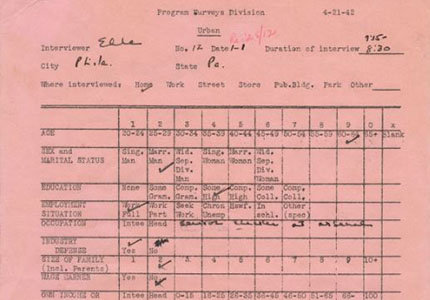 Program Surveys Division 4-21-42
Urban
Interviewer No. 12 Date 1-1 Duration of interview 8:30
City Phila. State Pa.
Where interviewed: Home Work Street Store Pub.Bldg. Park Other
1 2 3 4 5 6 7 8 9 0 x
AGE 20-24 25-29 30-34 35-39 40-44 45-49 50-54 55-59 60-64 65+ Blank
SEX and Sing. Marr. Wid. Sing. Marr. Wid.
MARITAL STATUS Man Man Sep. Woman Woman Sep.
Div. Div.
Man Woman
EDUCATION None Some Comp. Some Comp. Some Comp.
Gram. Gram. High High Coll. Coll.
EMPLOYMENT Work Work Seek Chron Hswf. In Other
SITUATION Full Part Work Unemp. schl. (spec)
OCCUPATION Intee Head
INDUSTRY
DEFENSE Yes No
SIZE OF FAMILY 1 2 3 4 5 6 7 8 9 10+
(Incl. Parents)
WAGE EARNER Yes No
OWN INCOME OR Intee Head 0-15 16-25 26-35 36-45 100+